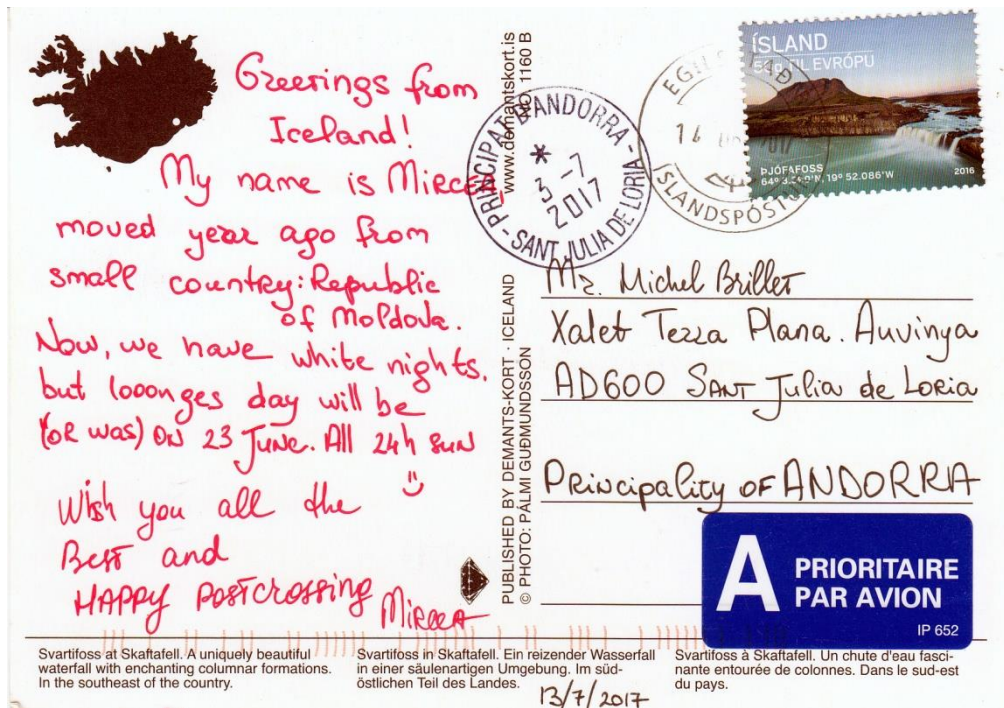 Greerings from
Iceland!
My name is Mircea,
moved year ago from
small country: Republic
of Moldova.
Now, we have white nights.
but looonges day will be
(or was) on 23 June. All 24h sun
Wish you all the
Best and
HAPPY Postcrossing
Mircea
www.demantskort.is
NO. 1160 B
PUBLISHED BY DEMANTS-KORT · ICELAND
© PHOTO: PÁLMI GUÐMUNDSSON
PRINCIPAT D'ANDORRA - SANT JULIA DE LORIA
* 3 -7
2017
ÍSLANDSPÓSTUR
ÍSLAND
50g TIL EVRÓPU
ÞJÓFAFOSS
19° 52.086'W
2016
Mr. Michel Brillet
Xalet Terra Plana. Auvinya
AD600 Sant Julia de Loria
Principality of ANDORRA
A PRIORITAIRE
PAR AVION
IP 652
Svartifoss at Skaftafell. A uniquely beautiful
waterfall with enchanting columnar formations.
In the southeast of the country.
Svartifoss in Skaftafell. Ein reizender Wasserfall
in einer säulenartigen Umgebung. Im süd-
östlichen Teil des Landes.
Svartifoss à Skaftafell. Un chute d'eau fasci-
nante entourée de colonnes. Dans le sud-est
du pays.
13/7/2017